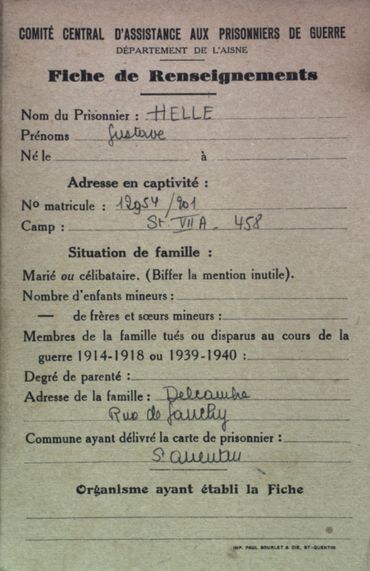 COMITÉ CENTRAL D'ASSISTANCE AUX PRISONNIERS DE GUERRE
DÉPARTEMENT DE L'AISNE
Fiche de Renseignements
Nom du Prisonnier : HELLE
Prénoms Gustave
Né le à
Adresse en captivité :
No matricule : 12954/201
Camp : St. VII A. 458
Situation de famille :
Marié ou célibataire. (Biffer la mention inutile).
Nombre d'enfants mineurs :
— de frères et sœurs mineurs :
Membres de la famille tués ou disparus au cours de la
guerre 1914-1918 ou 1939-1940 :
Degré de parenté :
Adresse de la famille : Delcambre
Rue de Gauchy
Commune ayant délivré la carte de prisonnier :
St Quentin
Organisme ayant établi la Fiche
IMP. PAUL BOURLET & CIE, ST-QUENTIN